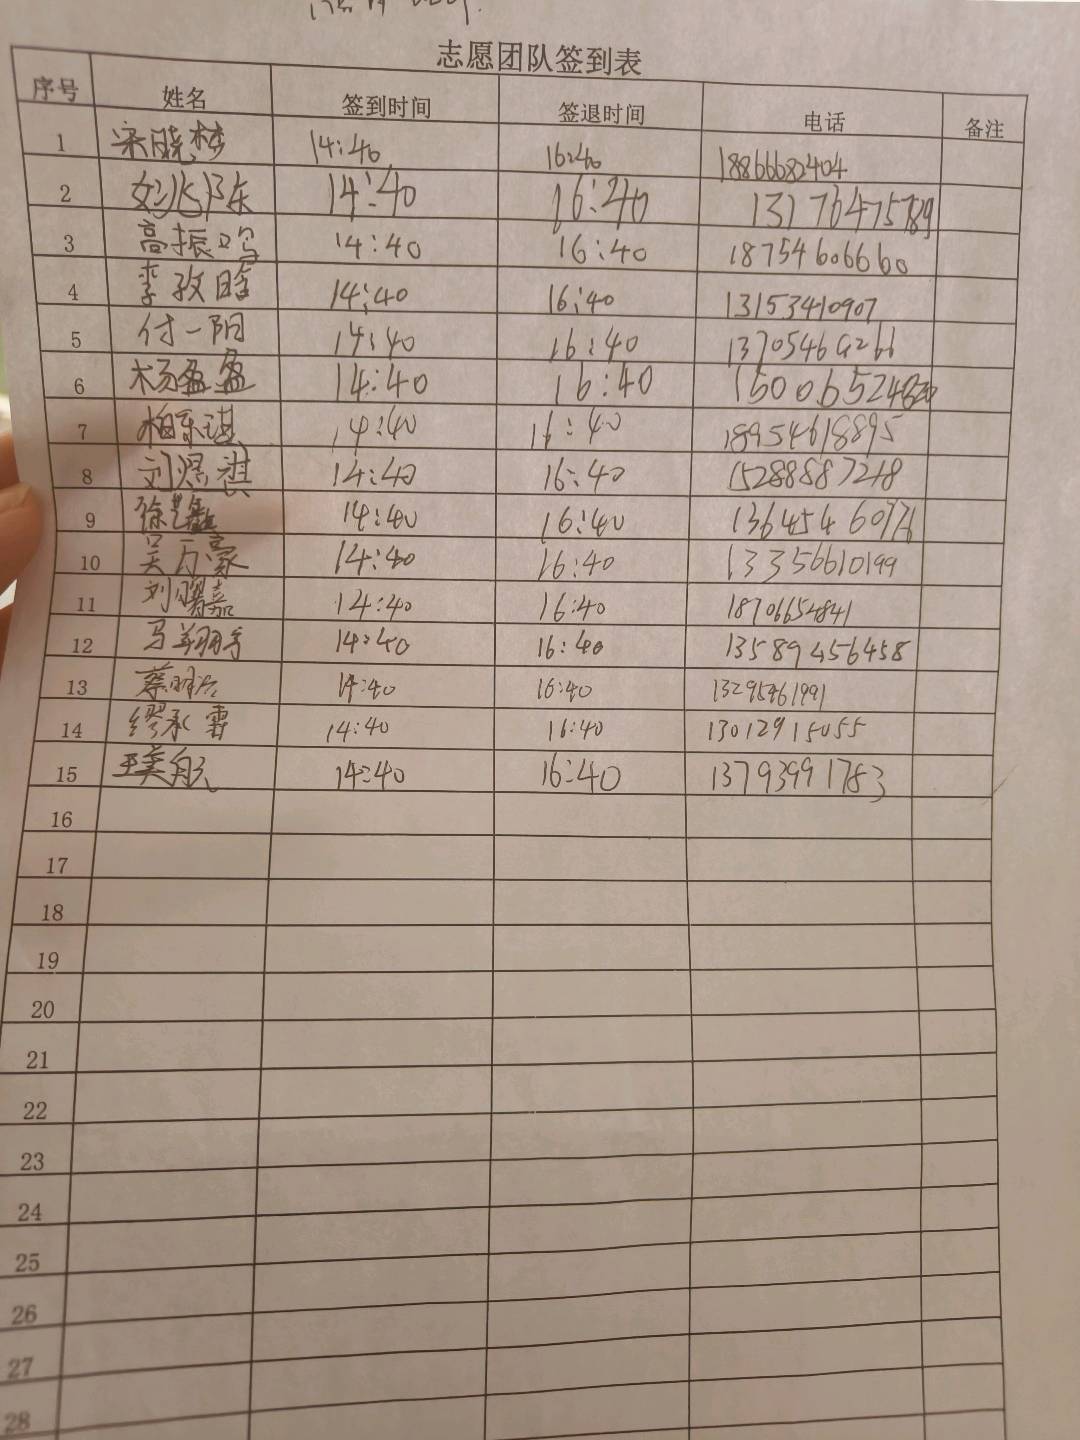 志愿团队签到表
序号 姓名 签到时间 签退时间 电话 备注
1 宋晓梦 14:40 16:40 18866682404
2 14:40 16:40 13176475789
3 高振鸣 14:40 16:40 18754606660
4 李孜晗 14:40 16:40 13153410907
5 付一阳 14:40 16:40 13705469266
6 杨盈盈 14:40 16:40
7 柏乐琪 14:40 16:40 18954618895
8 刘熙淇 14:40 16:40 15288887248
9 14:40 16:40
10 吴万豪 14:40 16:40 13356610199
11 刘曙嘉 14:40 16:40 18706654841
12 14:40 16:40 13589456458
13 蔡明 14:40 16:40
14 缪承霄 14:40 16:40 13012915055
15 王美航 14:40 16:40 13793991783
16
17
18
19
20
21
22
23
24
25
26
27
28